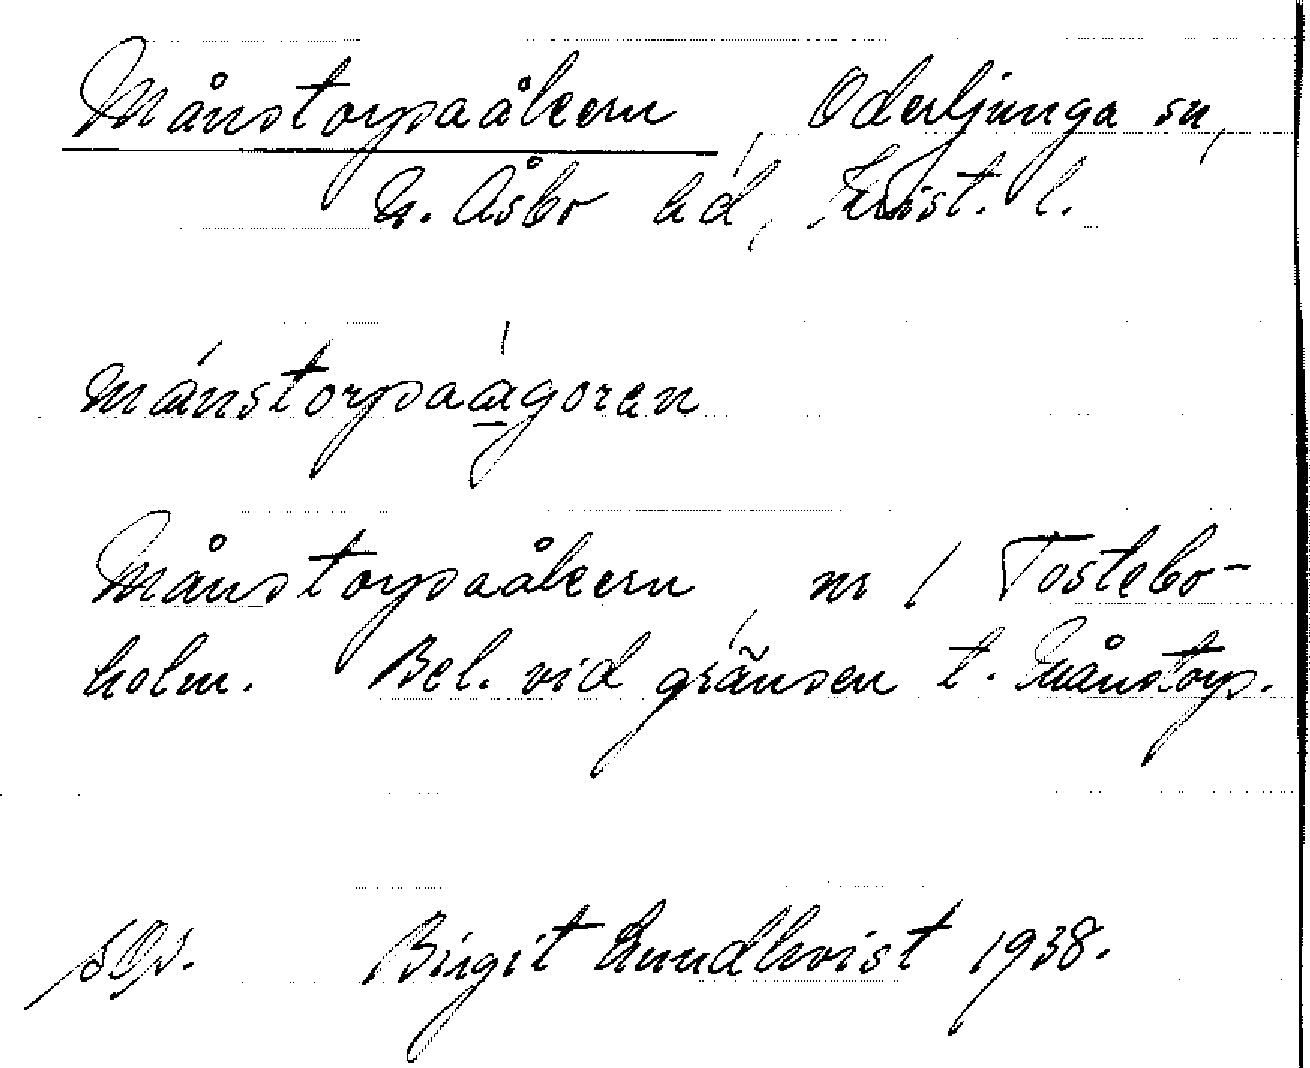 Månstorpaåkern, Oderljunga sn,
G. Åsbo hd, Krist. l.
månstorpaågoran
Månstorpaåkern, nr 1 Tostebo-
holm. Bel. vid gränsen t. Månstorp.
Birgit Lundkvist 1938.